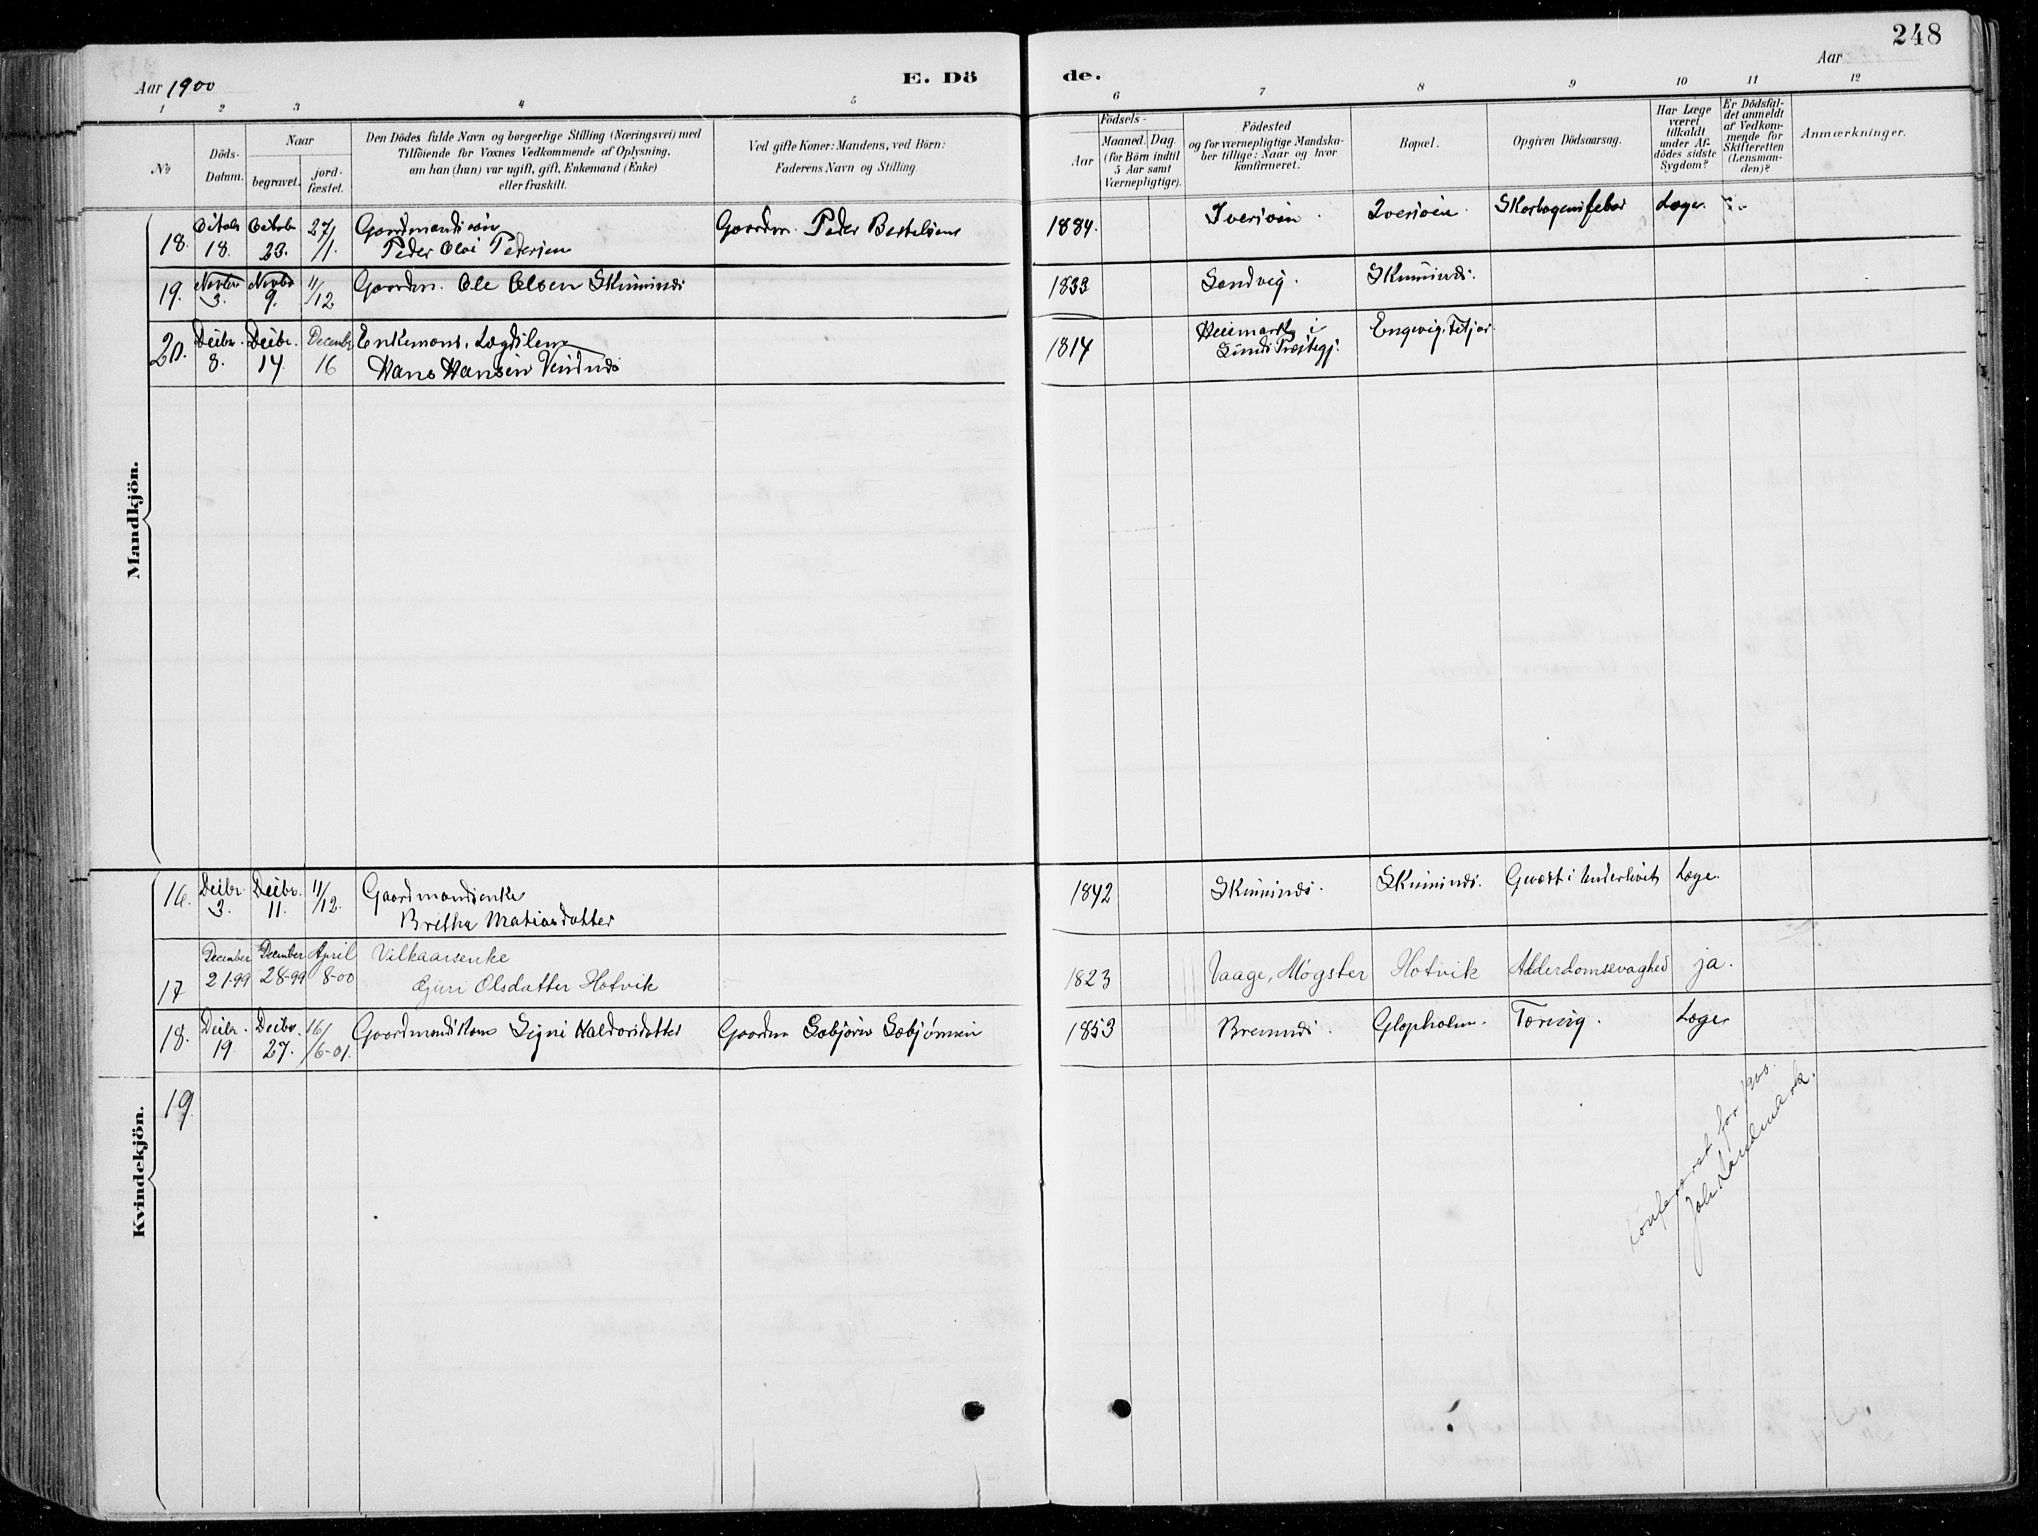 248
Aar 1900
E. Dö
de.
Aar
1 2 3 4 5 6 7 8 9 10 11 12
№
Döds-
Datum.
Naar
begravet.
jord-
fæstet.
Den Dödes fulde Navn og borgerlige Stilling (Næringsvei) med
Tilföiende for Voxnes Vedkommende af Oplysning,
om han (hun) var ugift, gift, Enkemand (Enke)
eller fraskilt.
Ved gifte Koner: Mandens, ved Börn:
Faderens Navn og Stilling
Födsels-
Aar
Maaned. Dag.
(for Börn indtil
5 Aar samt
Værnepligtige).
Födested
og for værnepligtige Mandska-
ber tillige: Naar og hvor
konfirmeret.
Bopæl.
Opgiven Dödsaarsag.
Har Læge
været
tilkaldt
under Af-
dödes sidste
Sygdom?
Er Dödsfal-
det anmeldt
af Vedkom-
mende for
Skifteretten
(Lensman-
den)?
Anmærkninger.
Mandkjön.
18. 18. 23. 27/1. Gaardmandssøn Gaardm. Peder Bertelsen 1884. Iversøen. Iversøen. Læge
Peder Olai Pedersen
19. Novbr 3. Novbr 9. 11/12 Gaardm. Ole Olsen Skumsnæs 1833 Sandvig. Skumsnæs.
20. Decbr. 8. Decbr. 14. December 16 Enkemand, Lægdslem 1814 i Engevig, Fitjar.
Hans Hansen Sunds Præstegj.
Kvindekjön.
16. Decbr 3. Decbr. 11. 11/12. Gaardmandsenke 1842 Skumsnæs. Skumsnæs. i Underlivet Læge.
Britha Matiasdatter
17 December 21-99 December 28-99 April 8-00 Vilkaarsenke 1823 Vaage, Møgster Hotvik Alderdomssvaghed ja.
Gjuri Olsdatter Hotvik
18. Decbr. 19 Decbr. 27. 16/6-01. Gaardmandskone Signi Haldorsdatter Gaardm Sæbjørn Sæbjørnsen 1853 Bremnæs. Glopholm. Tæring. Læge
19.
Konfereret for 1900.
Joh. Landmark.